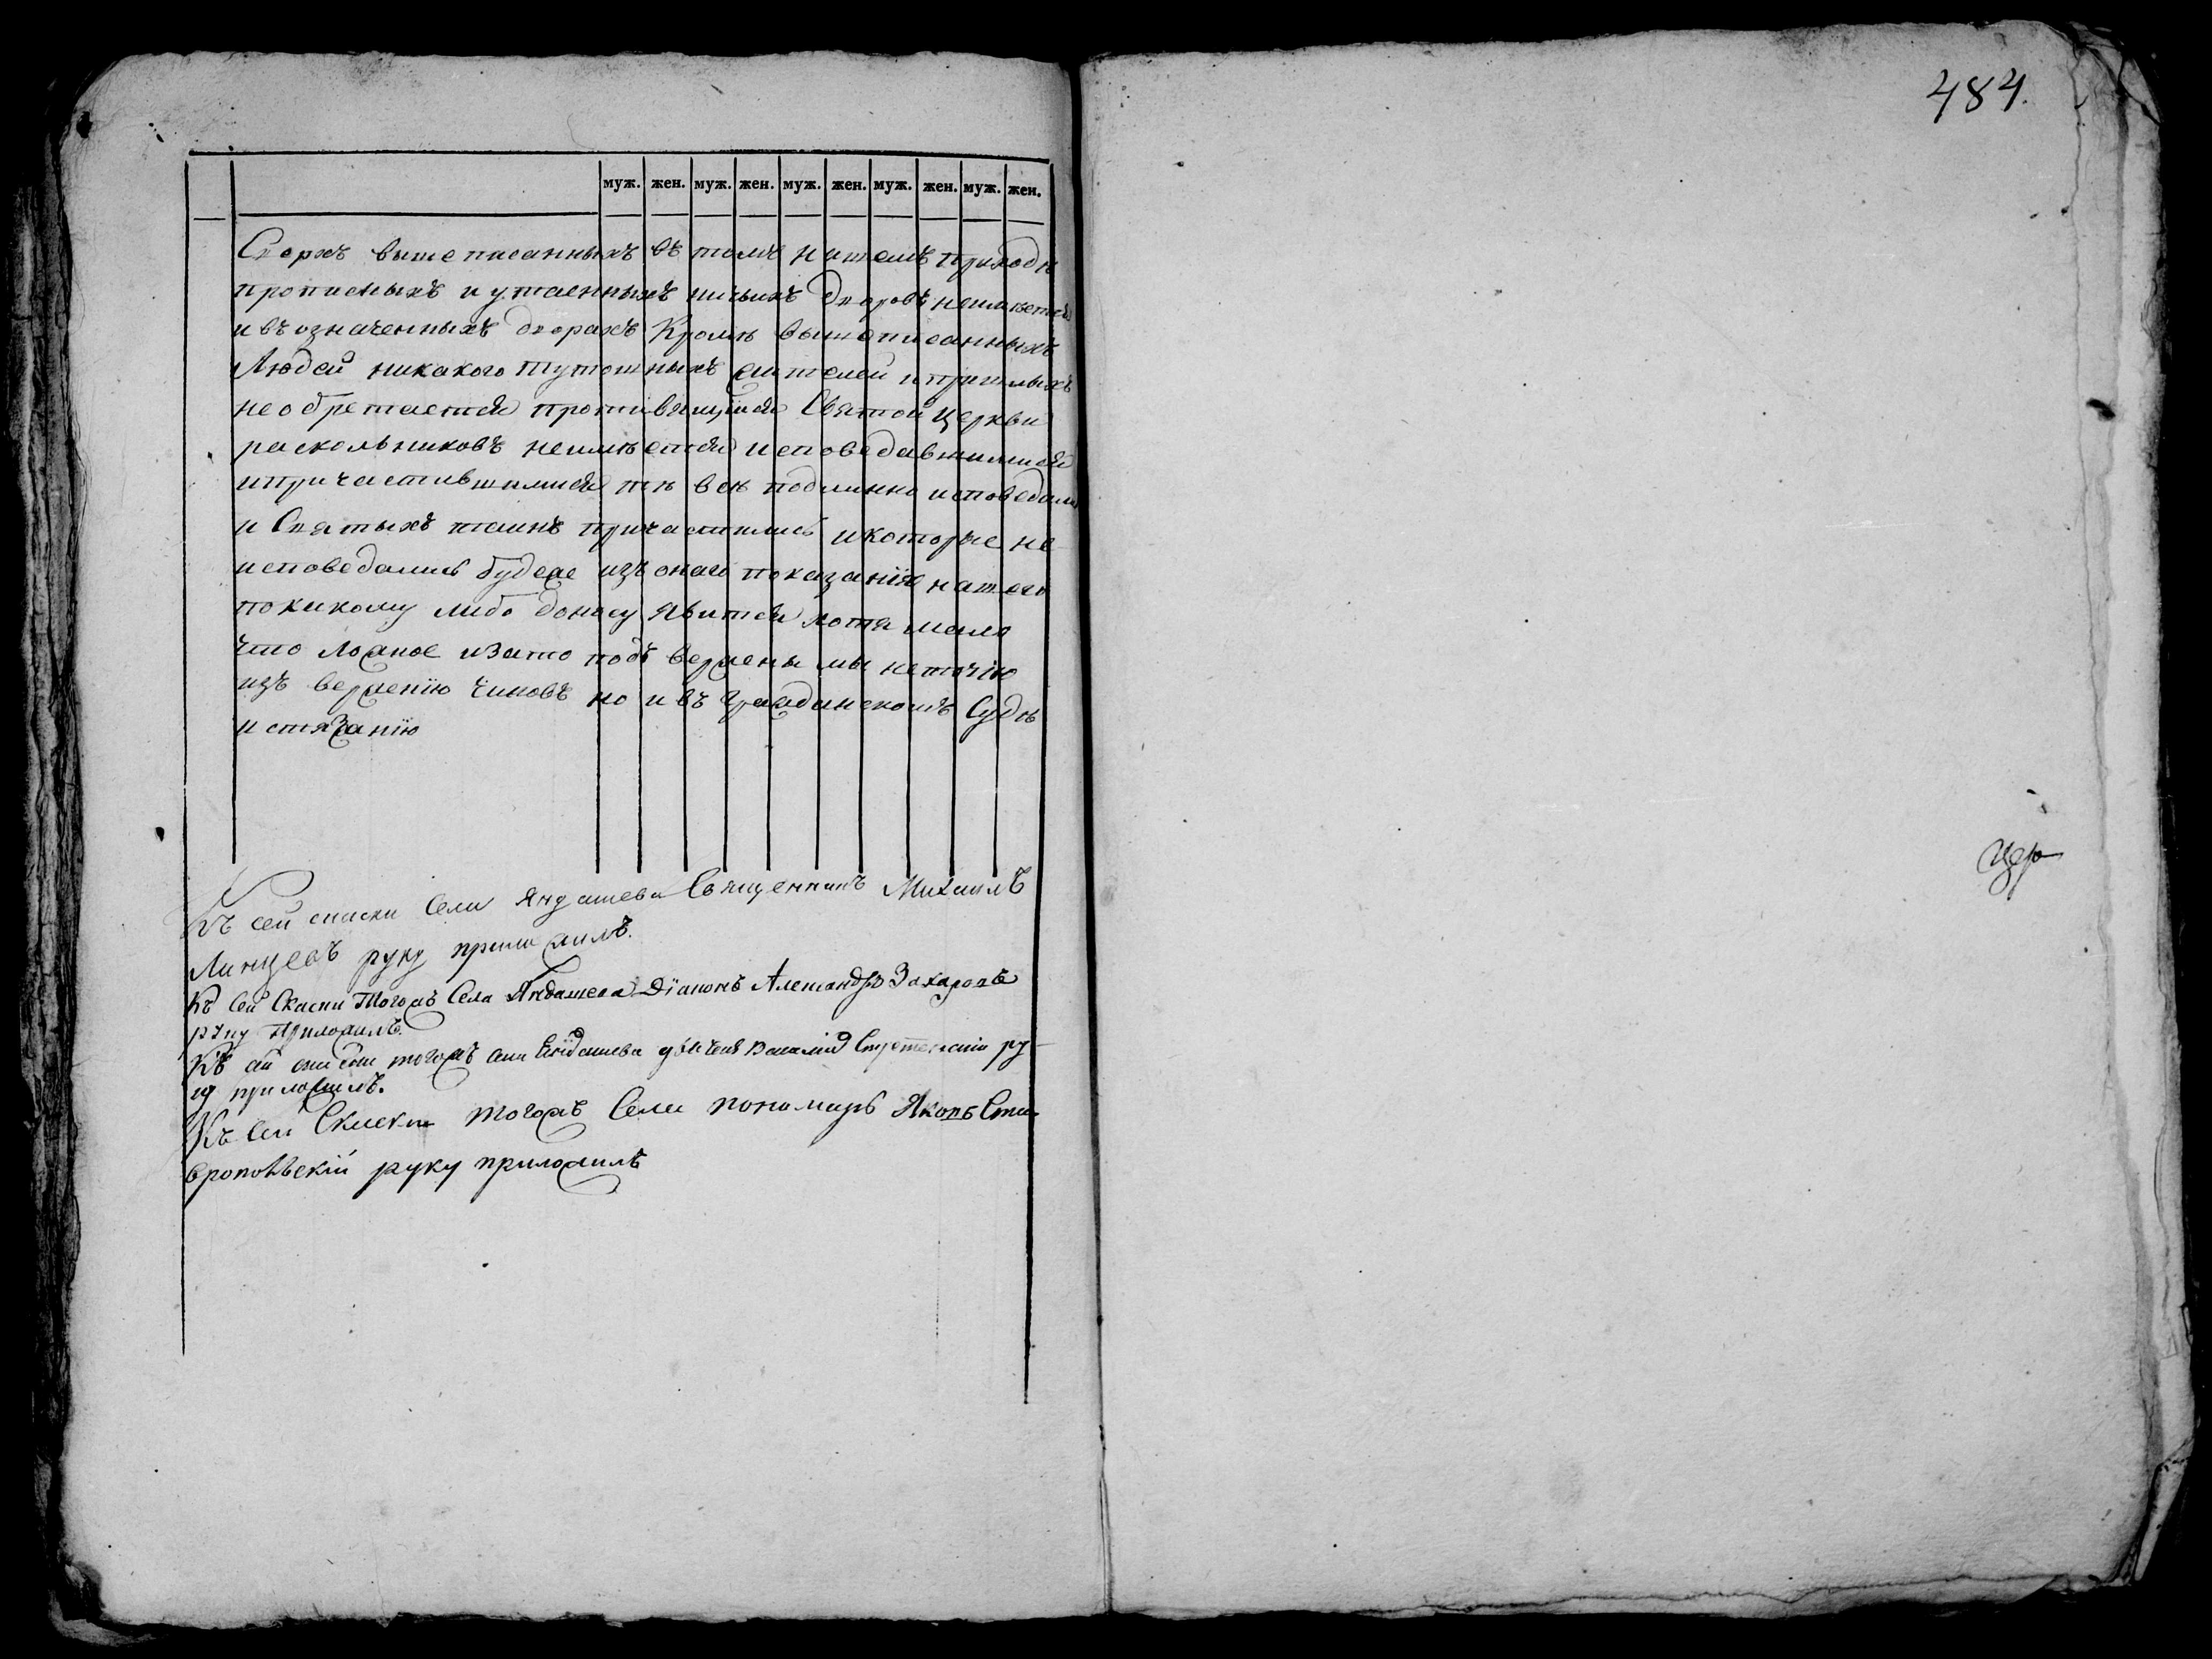 484.
муж. жен. муж. жен. муж. жен. муж. жен. муж. жен.
Сверхъ вышеписанныхъ въ томъ нашемъ приходѣ
прописныхъ и утаенныхъ ничьихъ дворовъ неимѣется
и въ означенныхъ дворахъ кромѣ вышеписанныхъ
Людей никакого тутошныхъ жителей и пришлыхъ
необретается противящихся Святой церкви
раскольниковъ неимѣется исповедавшимися
и причастившимися тѣ всѣ подлинно исповедали
и Святыхъ таинъ причастились и которые не
исповедались будеже изъ онаго показанія нашего
по какому либо доносу явится хотя мало
что ложное и зато подъ вержены мы неточію
изъ вержению чиновъ но и въ гражданскомъ Судѣ
истязанію
Къ сей скаски села Яндашева Священникъ Михаилъ
руку приложилъ.
Къ сей Скаски Тогожъ Села Яндашева Діаконъ Александръ Захаровъ
руку Приложилъ.
Къ сей скаски тогожъ села Яндашева дьячекъ Василій Стретенскій ру
ку приложилъ.
Къ сей Скаски тогожъ Села пономарь Яковъ Ста
вропольскій руку приложилъ